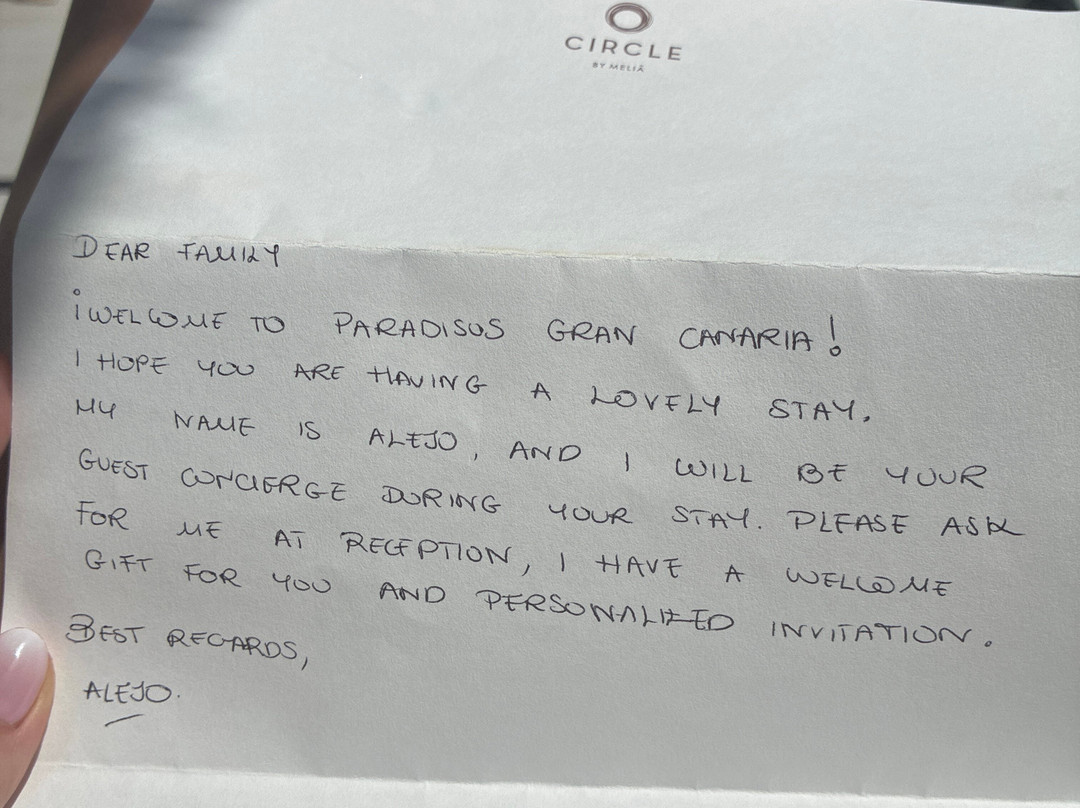 CIRCLE
BY MELIÃ
DEAR FAMILY
¡WELCOME TO PARADISUS GRAN CANARIA!
I HOPE YOU ARE HAVING A LOVELY STAY.
MY NAME IS ALEJO, AND I WILL BE YOUR
GUEST CONCIERGE DURING YOUR STAY. PLEASE ASK
FOR ME AT RECEPTION, I HAVE A WELCOME
GIFT FOR YOU AND PERSONALIZED INVITATION.
BEST REGARDS,
ALEJO.